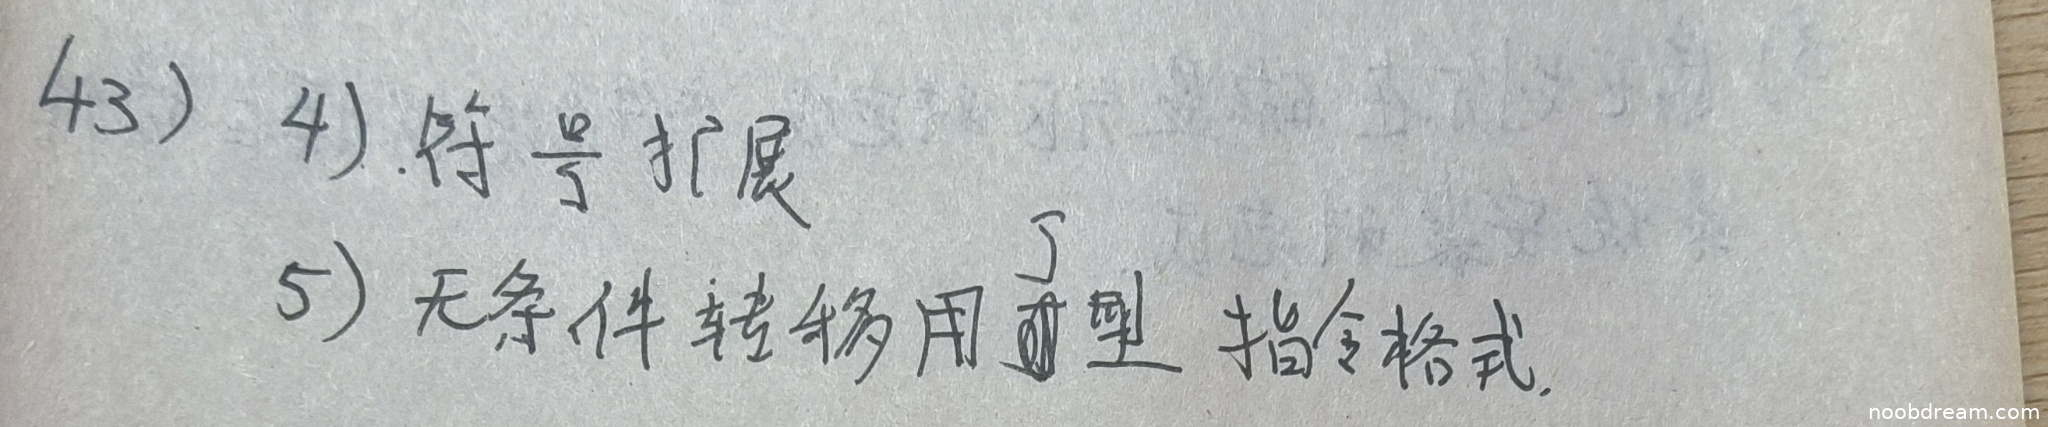 43) 4).符号扩展
5) 无条件转移用J型 指令格式.
noobdream.com